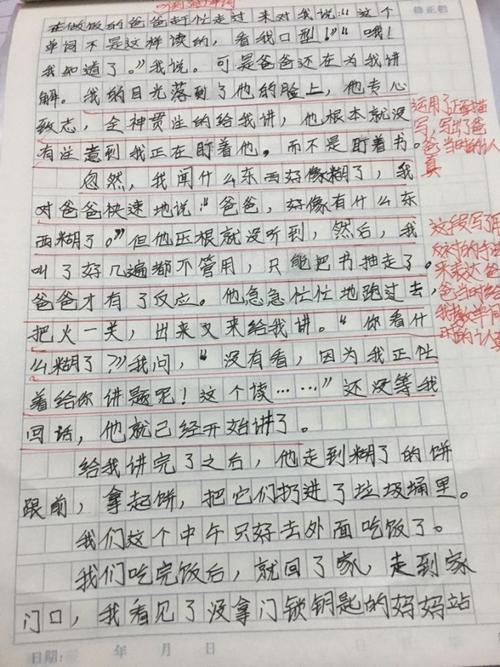 在做饭的爸爸赶忙走过来对我说："这个
单间不是这样读的，看我口型！""哦！
我知道了。"我说。可是爸爸还在为我讲
解。我的目光落到了他的脸上，他专心
致志，全神贯注的给我讲，他根本就没
有注意到我正在盯着他。而不是盯着书。
忽然，我闻什么东西好像糊了，我
对爸爸快速地说："爸爸，好像有什么东
西糊了。"但他压根就没听到，然后，我
叫了好几遍都不管用，只能把书抽走了。
爸爸才有了反应。他急急忙忙地跑过去，
把火一关，出来又来给我讲。"你看什
么糊了？"我问，"没有看，因为我正忙
着给你讲题呢！这个读……"还没等我
回话，他就已经开始讲了。
给我讲完了之后，他走到糊了的饼
跟前，拿起饼，把它们扔进了垃圾埇里。
我们这个中午只好去外面吃饭了。
我们吃完饭后，就回了家，走到家
门口，我看见了没拿门锁钥匙的妈妈站
运用了正面描
写，写出了爸
爸当时的认
真
这段写了用
反衬的手法
来表达爸
爸当时给
我讲单词
时的认真
日期： 年 月 日